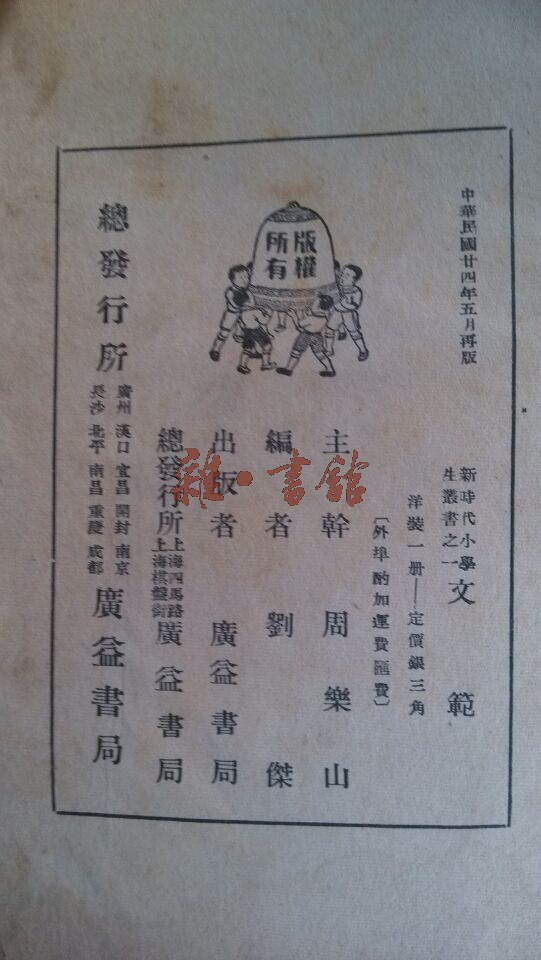 中華民國廿四年五月再版
新時代小學
生叢書之一
文範
洋裝一册——定價銀三角
〔外埠酌加運費匯費〕
版權
所有
主幹周樂山
編者劉傑
出版者廣益書局
總發行所
上海四馬路
上海棋盤街
廣益書局
總發行所
廣州漢口宜昌開封南京
長沙北平南昌重慶成都
廣益書局
雜·書館